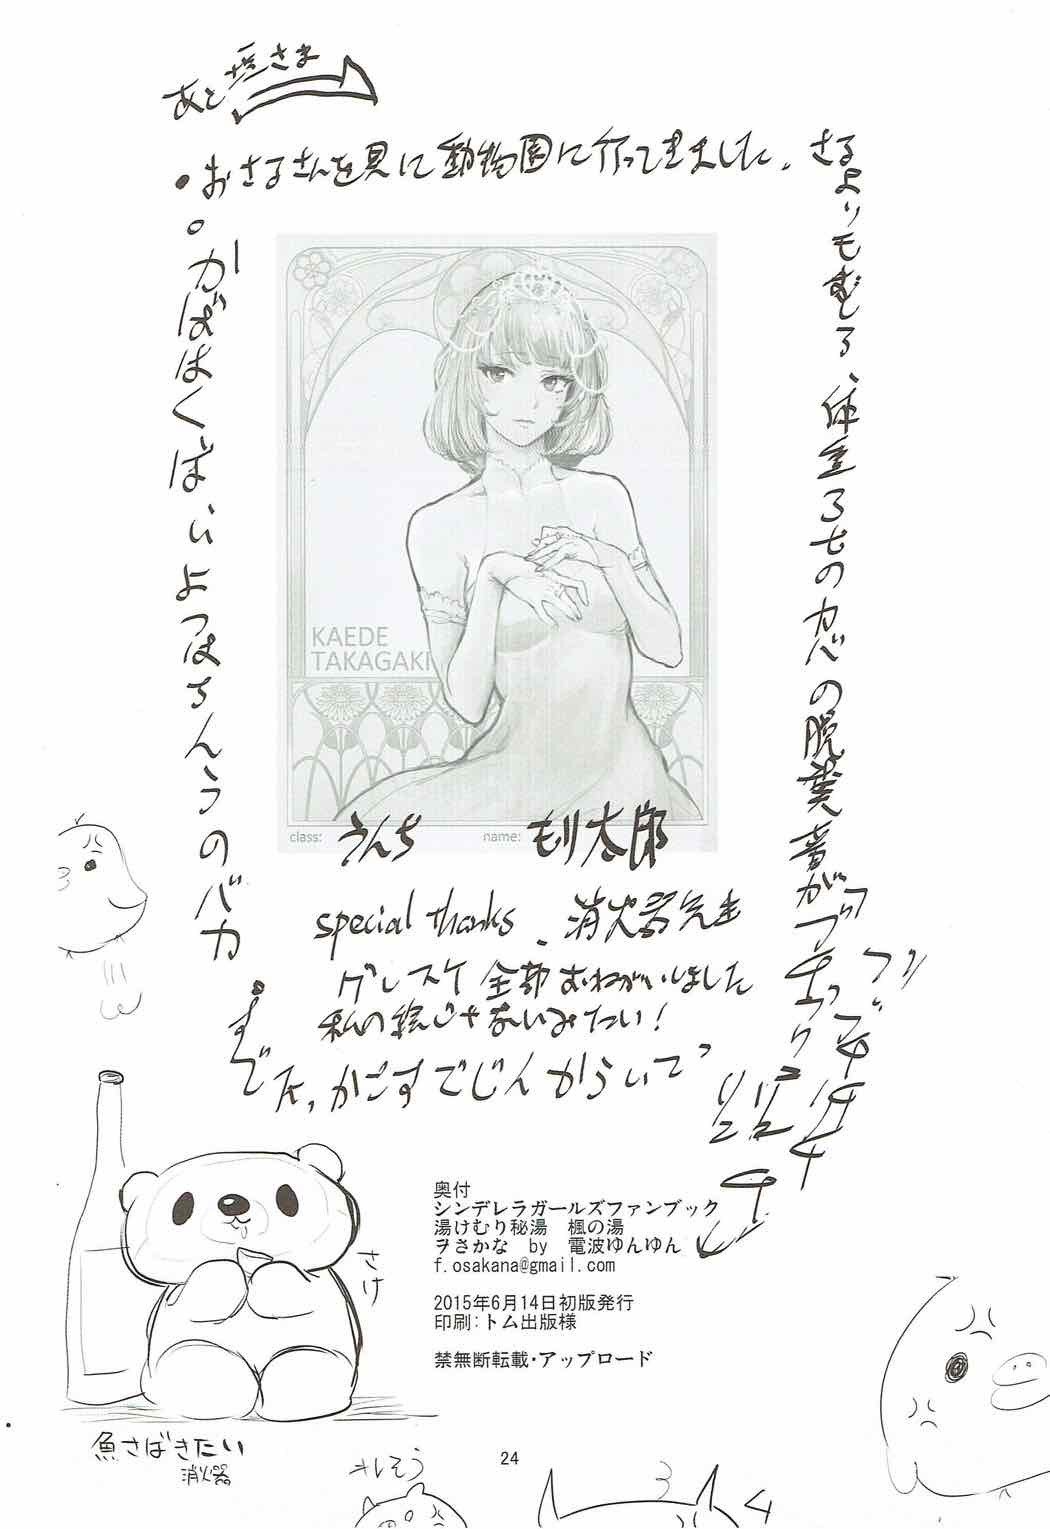 あと塩さま
・おさるさんを見に動物園に行ってきました。さるよりもむしろ、体重3tのカバの脱糞音が
・かばはくばいよつはちんうのバカ
KAEDE
TAKAGAKI
class: うんち
name: もり太郎
special thanks 、消火器先生
グレスケ 全部おねがいしました
私の絵じゃないみたい!
さけ
奥付
シンデレラガールズファンブック
湯けむり秘湯 楓の湯
ヲさかな by 電波ゆんゆん
f.osakana@gmail.com
2015年6月14日初版発行
印刷:トム出版様
禁無断転載・アップロード
魚さばきたい
消火器
24